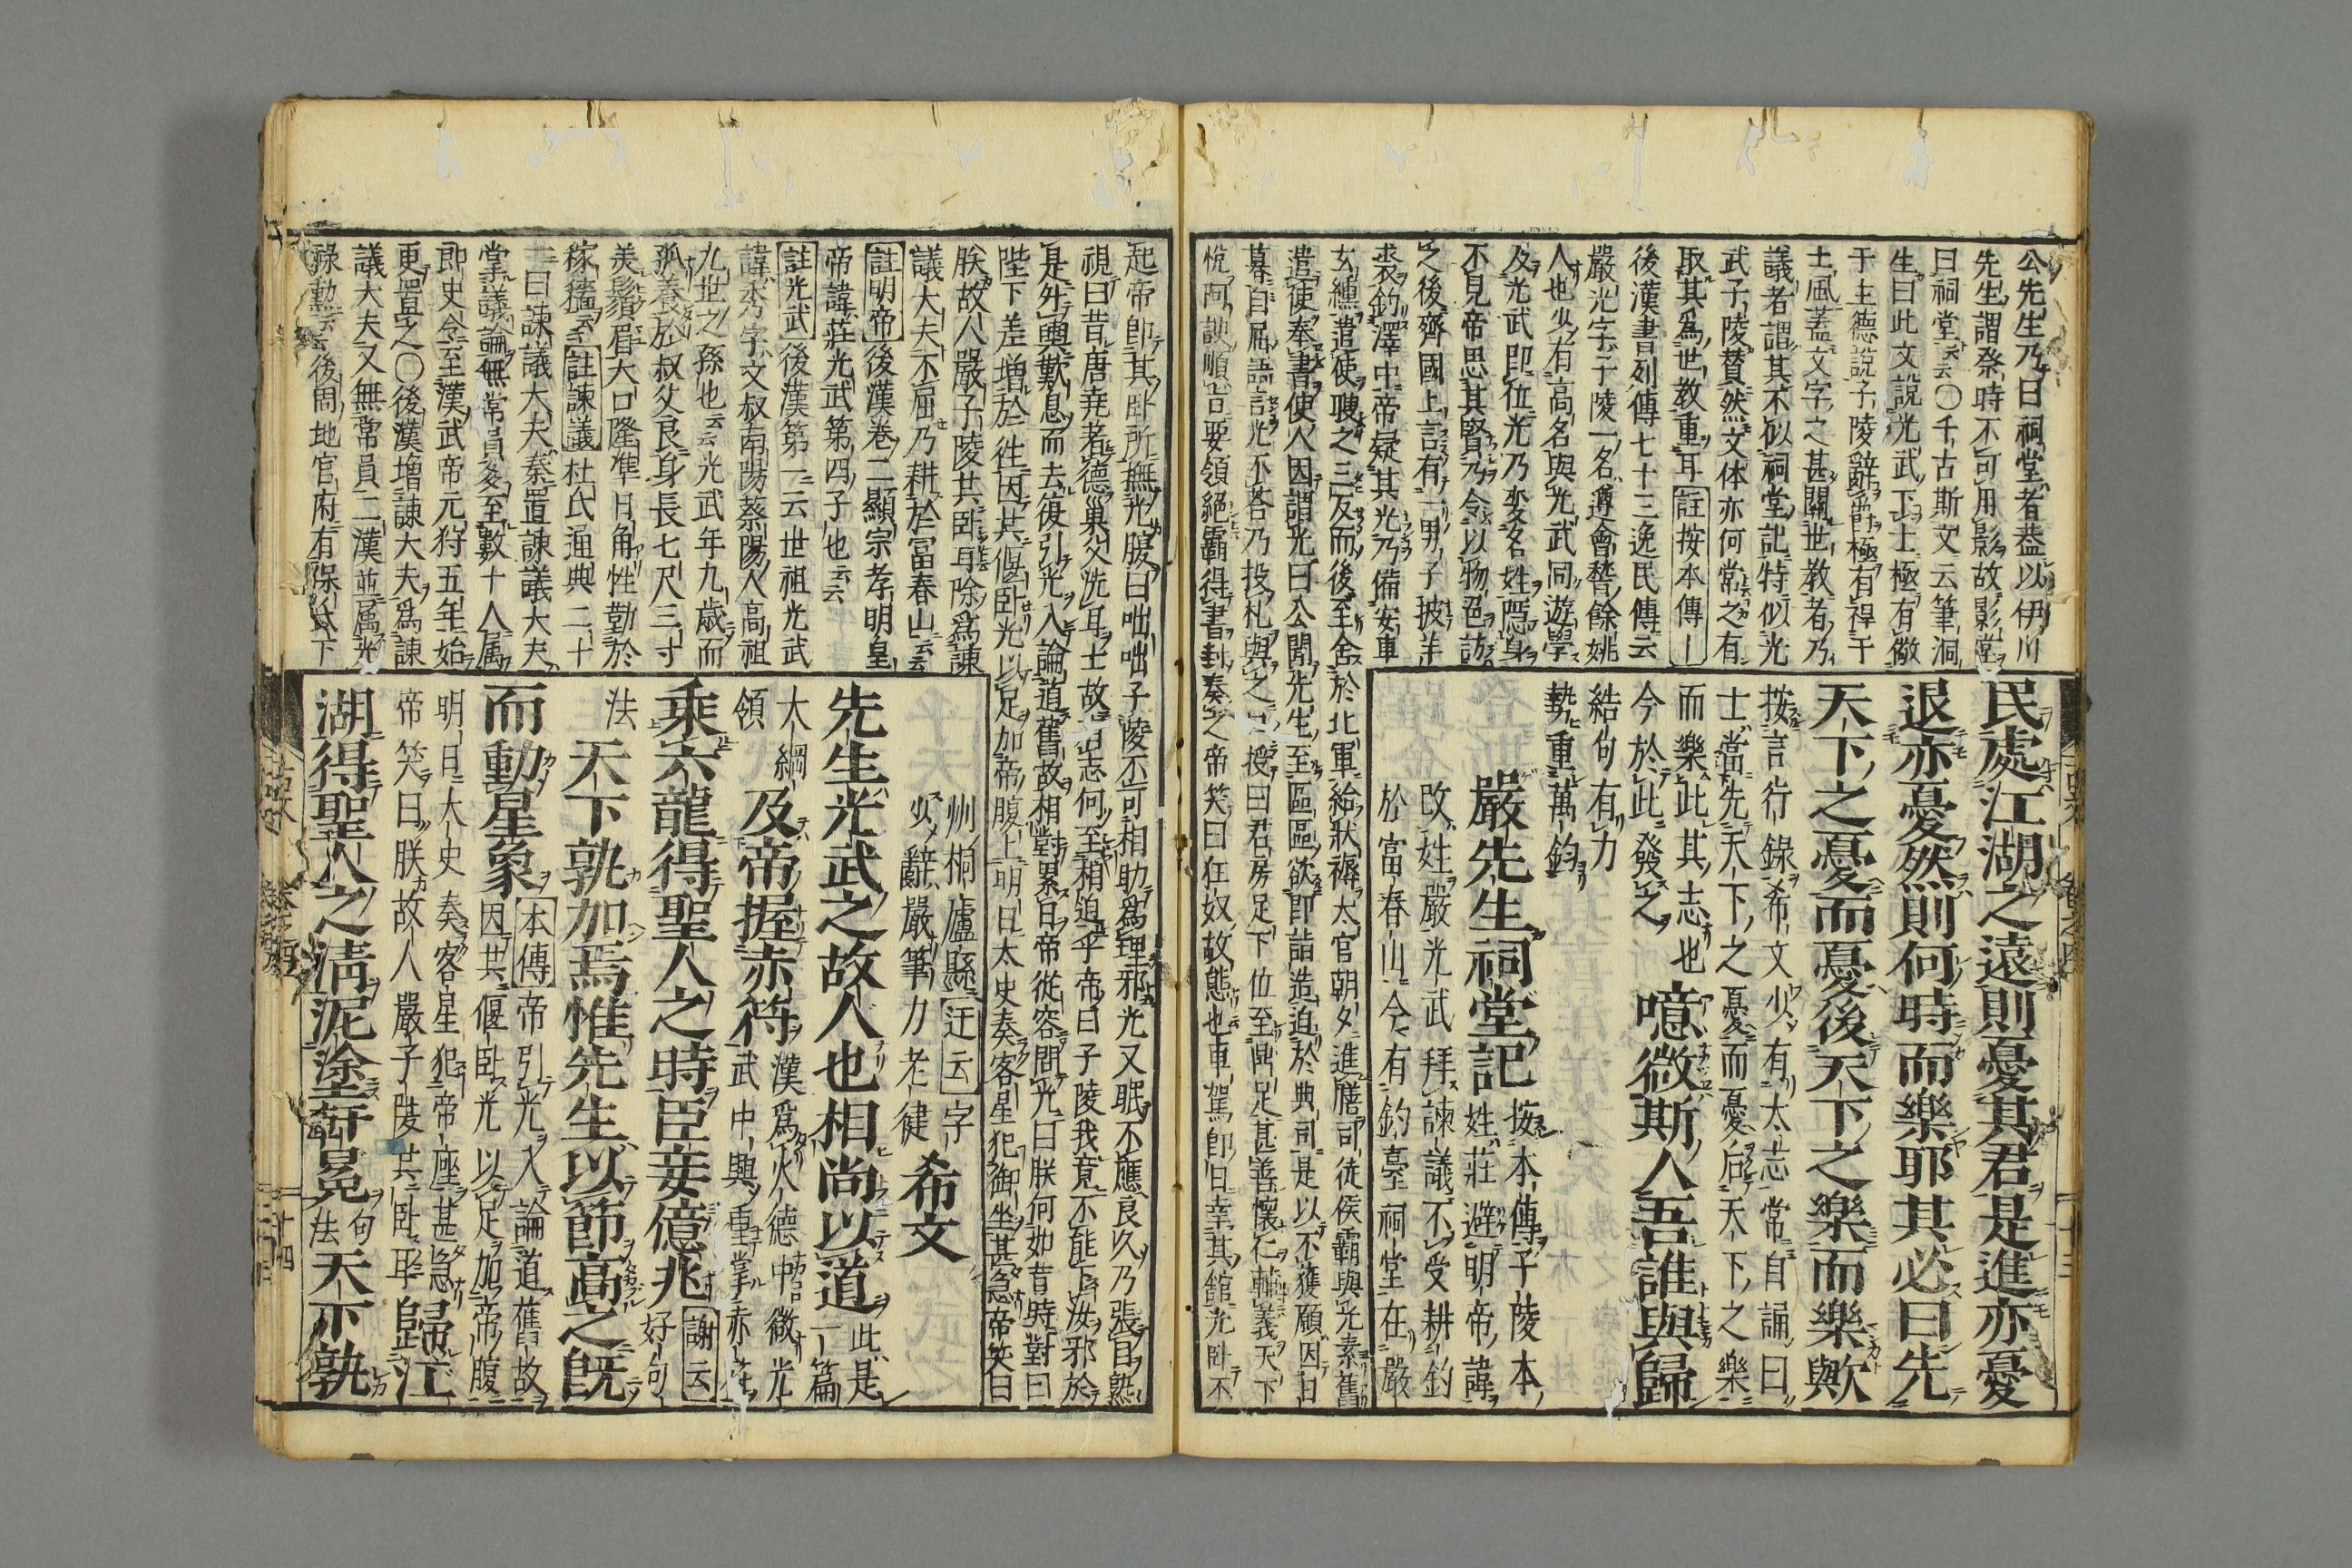 公先生乃曰祠堂者蓋以伊川
先生謂祭時不可用影故影堂
曰祠堂云云〇千古斯文云筆洞
生曰此文說光武下士極有儆
于主德說子陵辭爵極有禆于
士風蓋文字之甚關世教者乃
議者謂其不似祠堂記特似光
武子陵賛然文体亦何常之有
取其爲世教重耳註按本傳
後漢書列傳七十三逸民傳云
嚴光字子陵一名遵會稽餘姚
人也少有高名與光武同遊學
及光武即位光乃変名姓隠身
不見帝思其賢乃令以物色訪
之後齊國上言有一男子披羊
裘釣澤中帝疑其光乃備安車
玄纁遣使聘之三反而後至舍於北軍給牀褥太官朝夕進膳司徒侯霸與光素舊
遣使奉書使人因謂光曰公聞先生至區區欲即詣造迫於典司是以不獲願因日
暮自屈語言光不荅乃投札與之口授曰君房足下位至鼎足甚善懷仁輔義天下
悦阿諛順旨要領絕霸得書封奏之帝笑曰狂奴故態也車駕即日幸其舘光卧不
民處江湖之遠則憂其君是進亦憂
退亦憂然則何時而樂耶其必曰先
天下之憂而憂後天下之樂而樂歟
按言行錄希文少有大志常自誦曰
士當先天下之憂而憂后天下之樂
而樂此其志也
今於此發之 噫微斯人吾誰與歸
結句有力
勢重萬鈞
嚴先生祠堂記 按本傳子陵本
姓莊避明帝諱
改姓嚴光武拜諫議不受耕釣
於富春山今有釣臺祠堂在嚴
起帝即其卧所撫光腹曰咄咄子陵不可相助爲理邪光又眠不應良久乃張目熟
視曰昔唐堯著德巢父洗耳士故有志何至相迫乎帝曰子陵我竟不能下汝邪於
是升輿歎息而去復引光入論道舊故相對累日帝從容問光曰朕何如昔時對曰
陛下差增於往因共偃卧光以足加帝腹上明日太史奏客星犯御坐甚急帝笑曰
朕故人嚴子陵共卧耳除爲諫
議大夫不屈乃耕於富春山云云
註明帝後漢卷二顯宗孝明皇
帝諱莊光武第四子也云云
註光武後漢第一云世祖光武
諱秀字文叔南陽蔡陽人高祖
九世之孫也云云光武年九歳而
孤養於叔父良身長七尺三寸
美鬚眉大口隆準日角性勤於
稼穡云云註諫議杜氏通典二十
一曰諫議大夫秦置諫議大夫
掌議論無常員多至數十人属
即史令至漢武帝元狩五年始
更置之〇後漢增諫大夫爲諫
議大夫又無常員二漢並属光
祿勳云云後周地官府有保氏下
州桐廬縣迂云字
少辭嚴筆力老健 希文
先生光武之故人也相尚以道 此是
一篇
大綱
領 及帝握赤符 漢爲火德中微光
武中興重掌赤符
乘六龍得聖人之時臣妾億兆 謝云
好句
法 天下孰加焉惟先生以節高之既
而動星象 本傳帝引光入論道舊故
因共偃卧光以足加帝腹
明日太史奏客星犯帝座甚急
帝笑曰朕故人嚴子陵共卧耳 歸江
湖得聖人之淸泥塗軒冕 句
法 天下孰